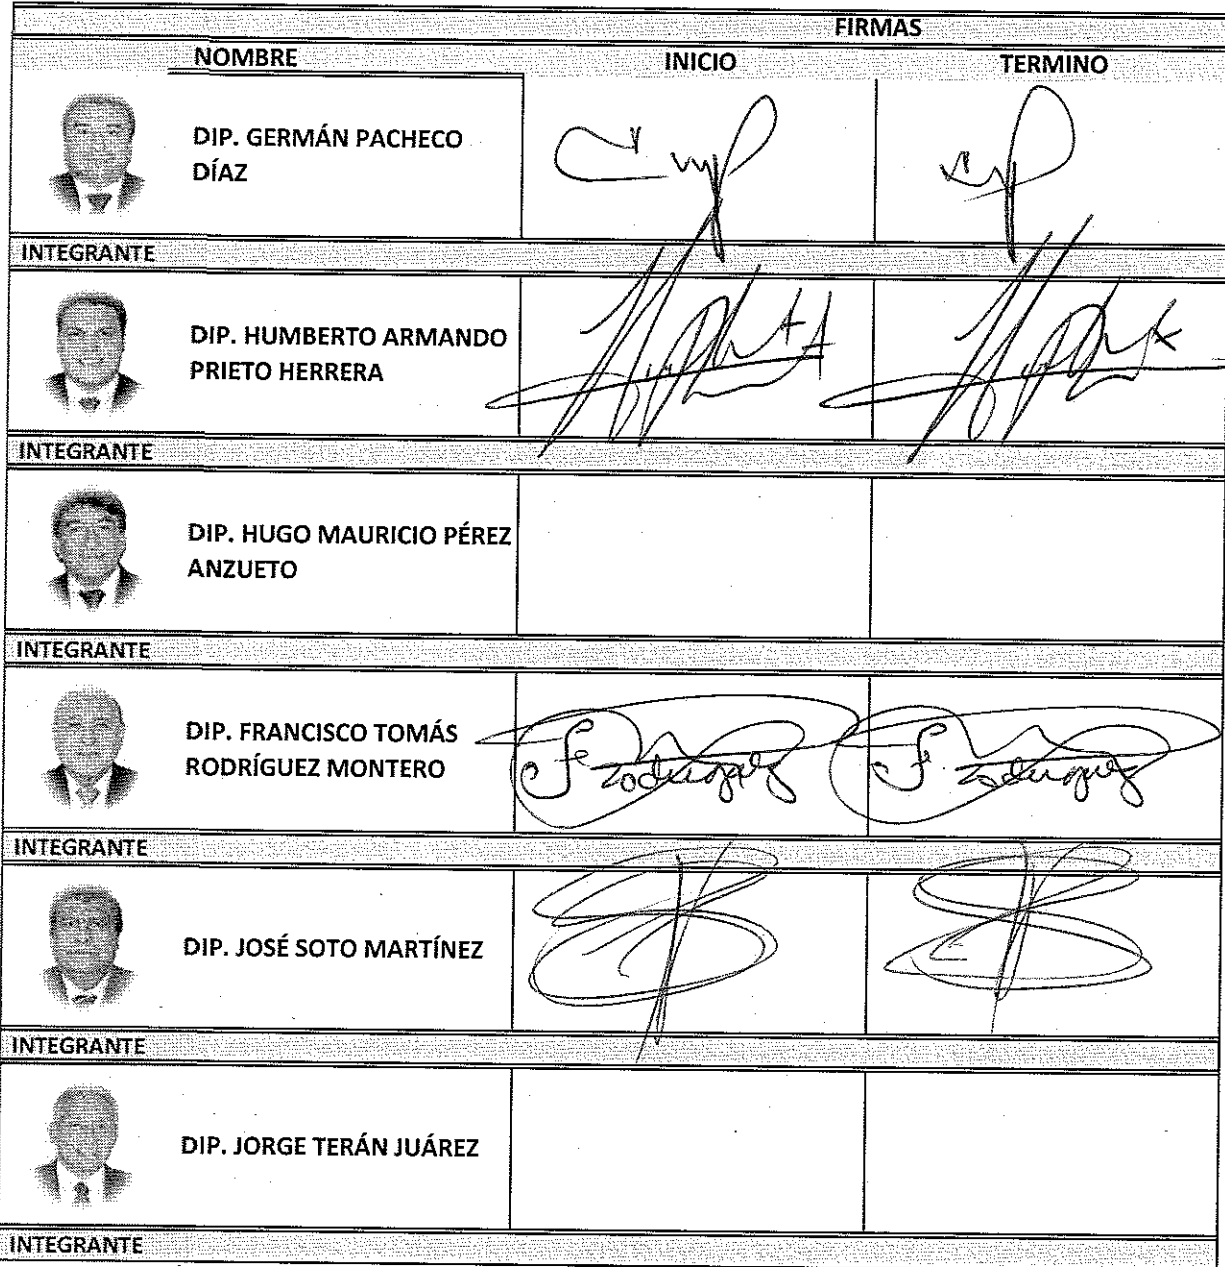 FIRMAS
NOMBRE INICIO TERMINO
DIP. GERMÁN PACHECO
DÍAZ
INTEGRANTE
DIP. HUMBERTO ARMANDO
PRIETO HERRERA
INTEGRANTE
DIP. HUGO MAURICIO PÉREZ
ANZUETO
INTEGRANTE
DIP. FRANCISCO TOMÁS
RODRÍGUEZ MONTERO
F. Rodríguez F. Rodríguez
INTEGRANTE
DIP. JOSÉ SOTO MARTÍNEZ
INTEGRANTE
DIP. JORGE TERÁN JUÁREZ
INTEGRANTE